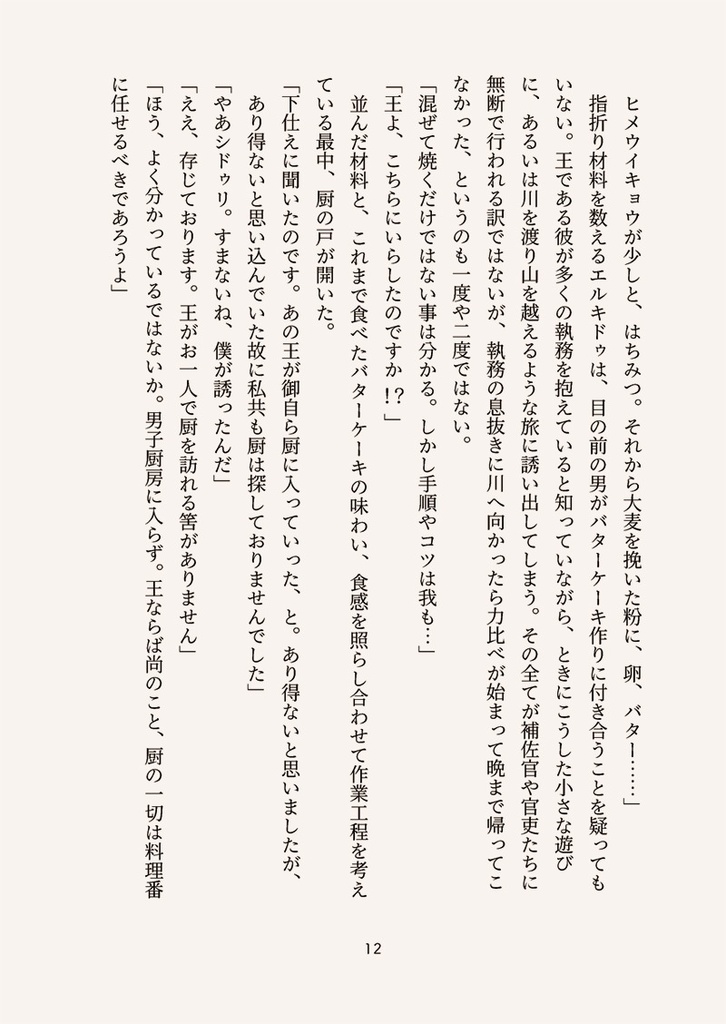 ヒメウイキョウが少しと、はちみつ。それから大麦を挽いた粉に、卵、バター……」
指折り材料を数えるエルキドゥは、目の前の男がバターケーキ作りに付き合うことを疑っても
いない。王である彼が多くの執務を抱えていると知っていながら、ときにこうした小さな遊び
に、あるいは川を渡り山を越えるような旅に誘い出してしまう。その全てが補佐官や官吏たちに
無断で行われる訳ではないが、執務の息抜きに川へ向かったら力比べが始まって晩まで帰ってこ
なかった、というのも一度や二度ではない。
「混ぜて焼くだけではない事は分かる。しかし手順やコツは我も…」
「王よ、こちらにいらしたのですか!?」
並んだ材料と、これまで食べたバターケーキの味わい、食感を照らし合わせて作業工程を考え
ている最中、厨の戸が開いた。
「下仕えに聞いたのです。あの王が御自ら厨に入っていった、と。あり得ないと思いましたが、
あり得ないと思い込んでいた故に私共も厨は探しておりませんでした」
「やあシドゥリ。すまないね、僕が誘ったんだ」
「ええ、存じております。王がお一人で厨を訪れる筈がありません」
「ほう、よく分かっているではないか。男子厨房に入らず。王ならば尚のこと、厨の一切は料理番
に任せるべきであろうよ」
12